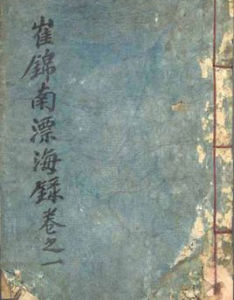 崔錦南漂海録卷之一